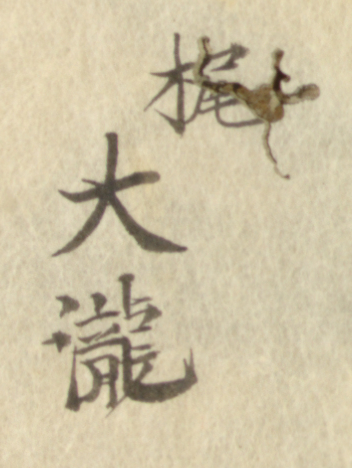 梶
大瀧